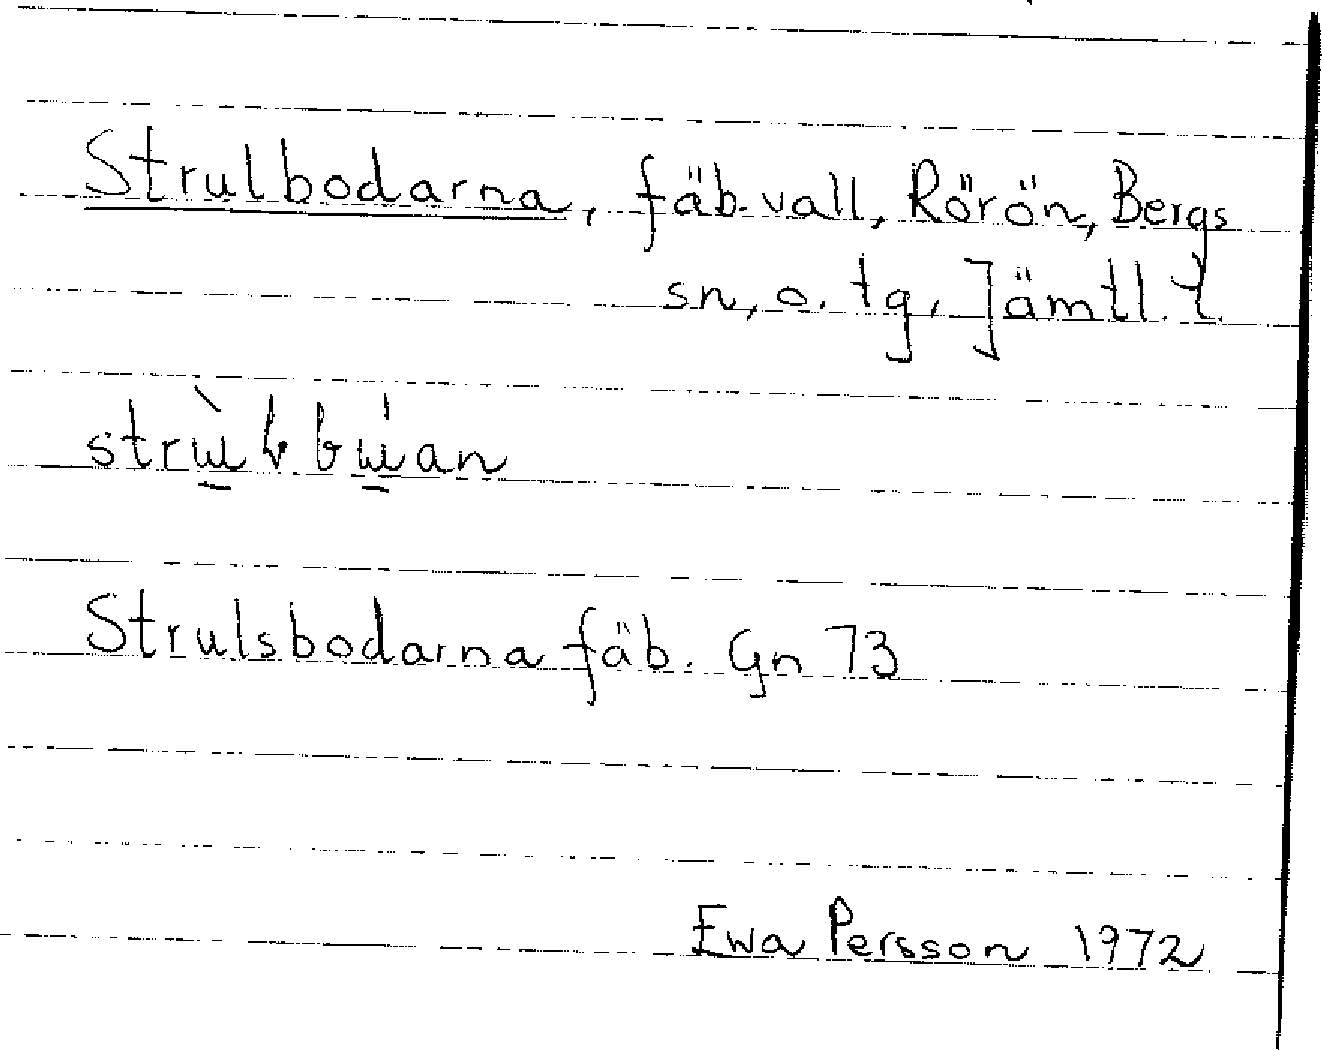 Strulbodarna, fäb.vall, Rörön, Bergs
sn, o. tg, Jämtl. l.
Strulsbodarna fäb. Gn 73
Ewa Persson 1972